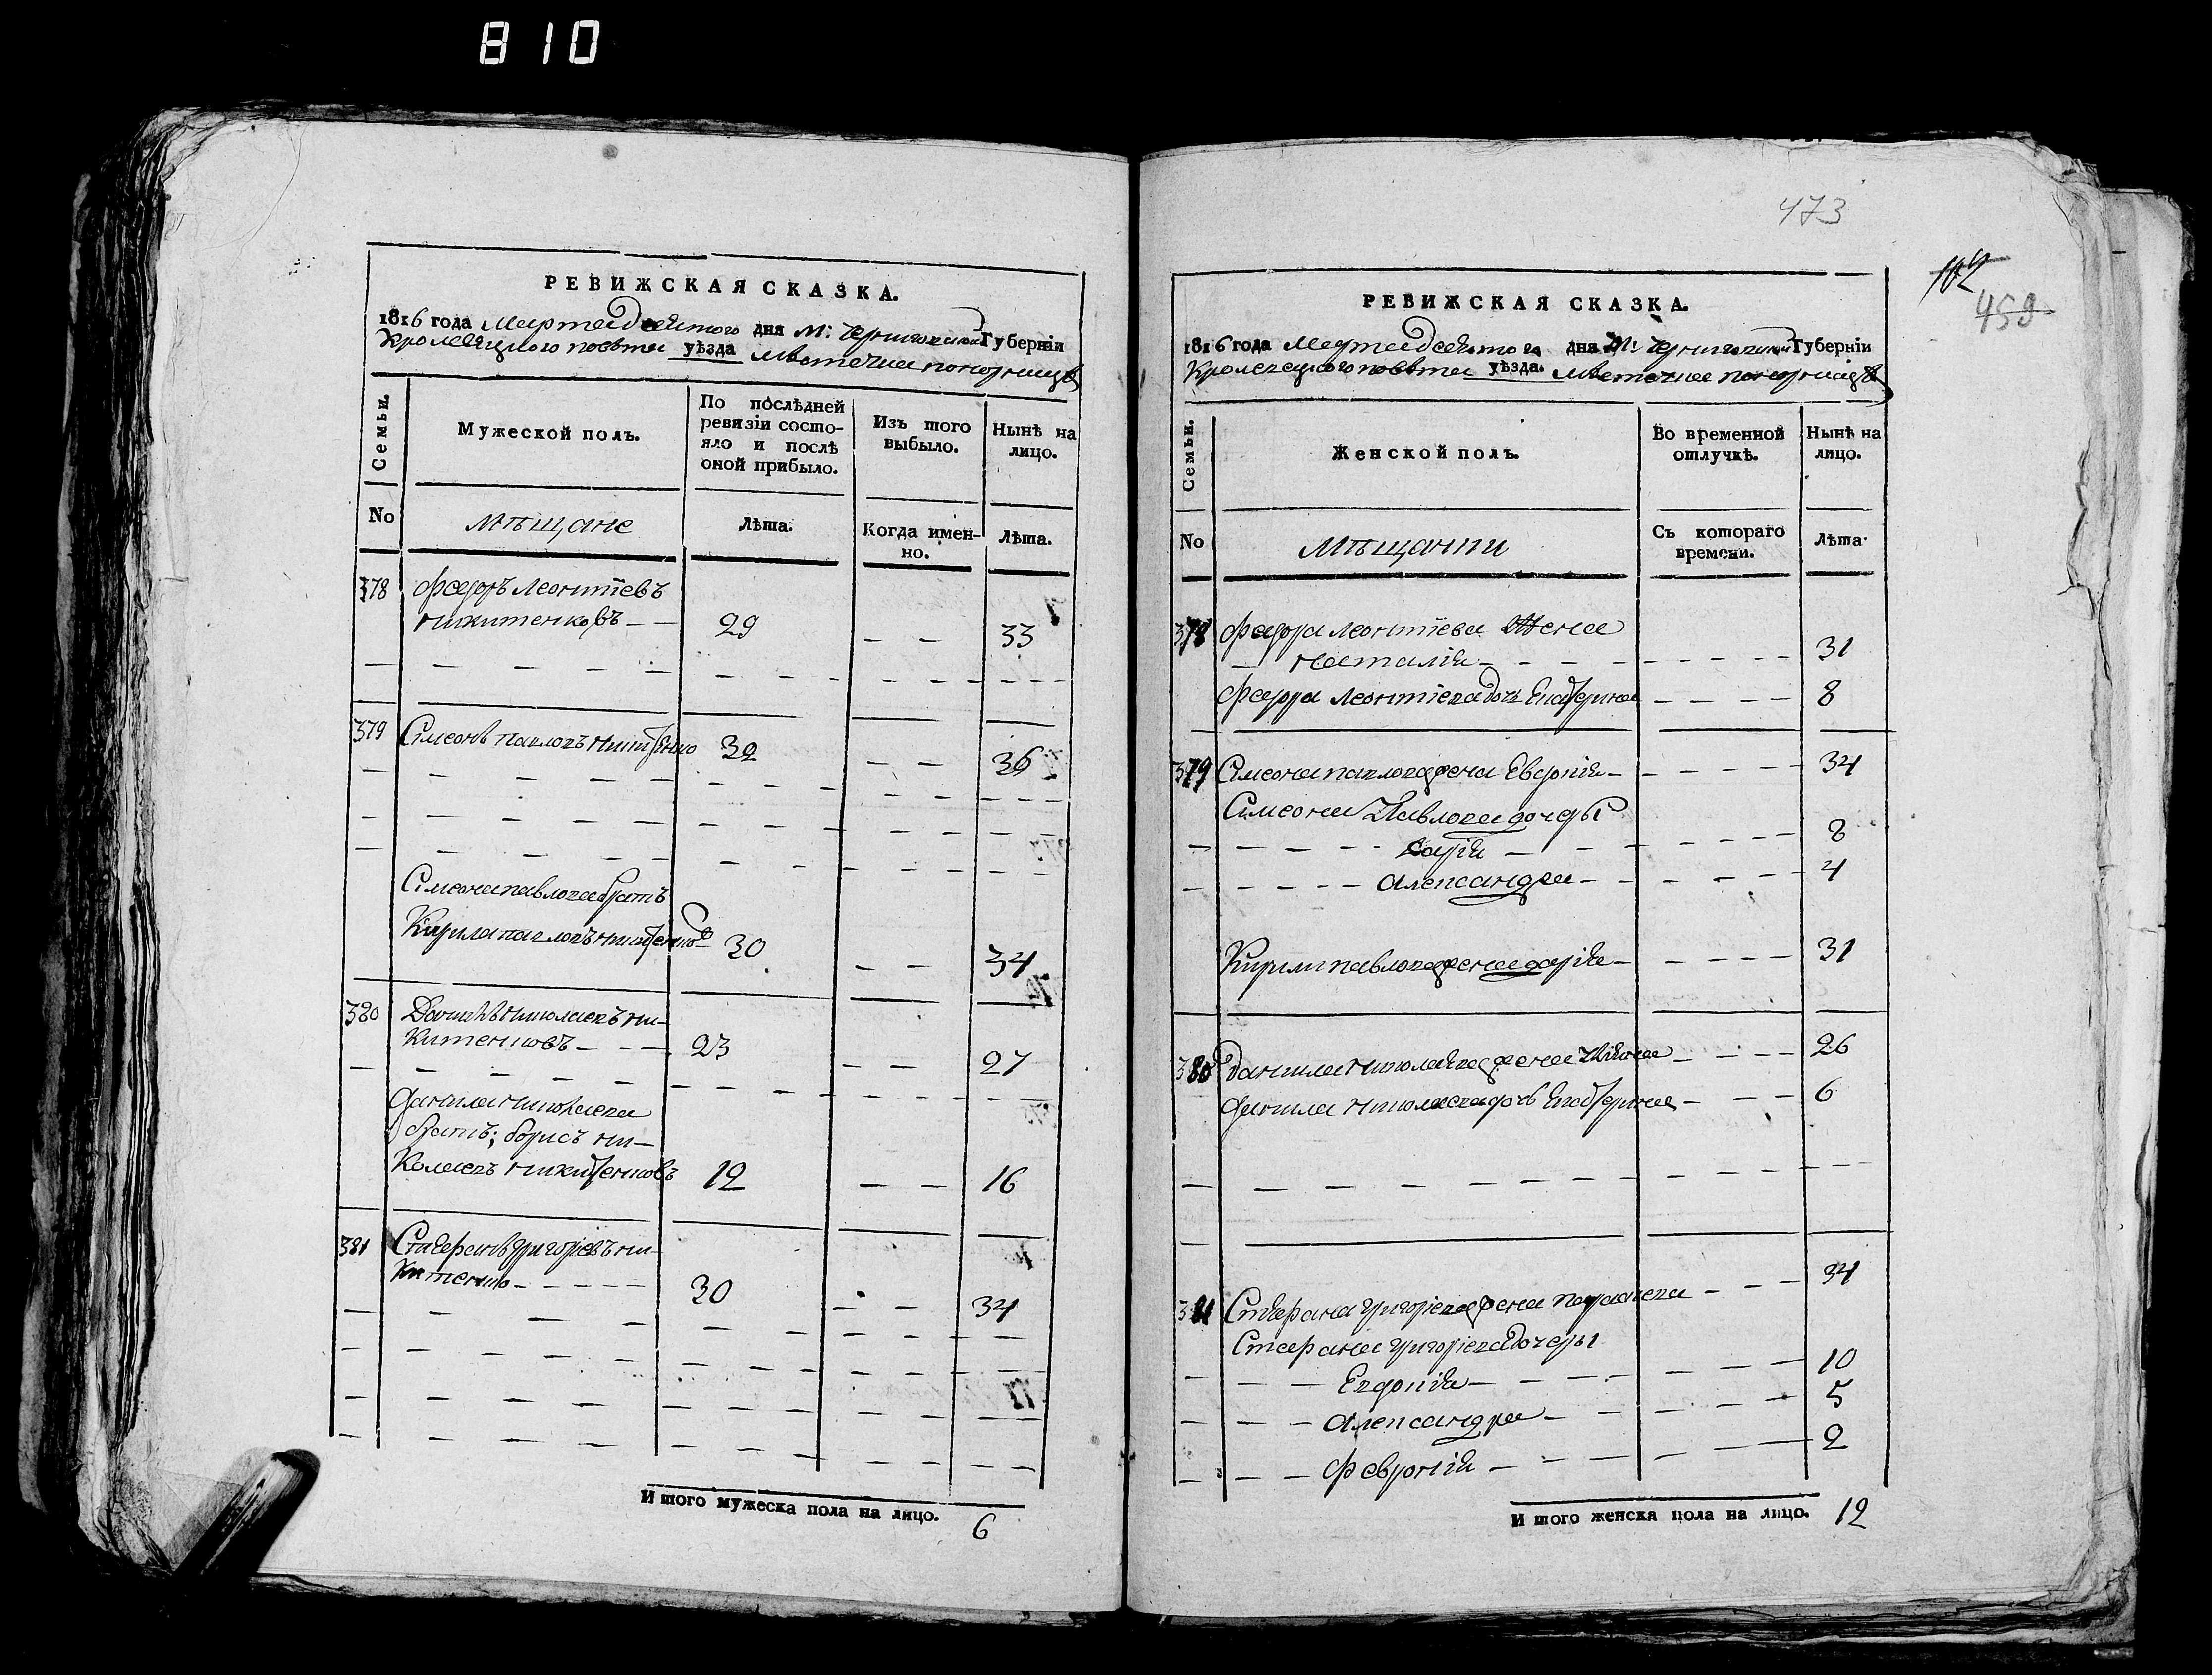 810
РЕВИЖСКАЯ СКАЗКА.
1816 года Марта десятого дня М: Черниговской Губерніи
Кролевецкого повѣта уѣзда мѣстечка понорницѣ
Семьи.
Мужеской полъ.
По послѣдней ревизіи состояло и послѣ оной прибыло.
Изъ того выбыло.
Нынѣ на лицо.
No
Мѣщане
Лѣта.
Когда именно.
Лѣта.
378 Федоръ Леонтіевъ
Никитенковъ — — 29 — — 33
379 Симеонъ Павловъ Никитенко 32 — — 36
Симеона павлова братъ
Кирила павловъ никитенко 30 — — 34
380 Данилъ Николаевъ Ни-
китенковъ — — — 23 — — 27
Данила Николаева
братъ; борисъ ни-
колаевъ никитенковъ 12 — — 16
381 Стефанъ григоріевъ ни-
китенко — — — — — 30 — — 34
И того мужеска пола на лицо. 6
473
102
459
РЕВИЖСКАЯ СКАЗКА.
1816 года Марта десятого дня М: Черниговской Губерніи
Кролевецкого повѣта уѣзда. мѣстечка понорницѣ
Семьи.
Женской полъ.
Во временной отлучкѣ.
Нынѣ на лицо.
No
Мѣщанки
Съ котораго времени.
Лѣта.
378 Федора Леонтіева жена
— Наталія — — — — 31
Федора Леонтіева дочь Екатерина — — — — 8
379 Симеона павлова жена Евдокія — — — — 34
Симеона Павлова дочеры
— — — — — — — 8
— — — — — Александра — — — — 4
Кирили павлова жена дарія — — — — 31
380 Данила Николаева жена — — — — 26
Данила Николаева дочь Екатерина — — — 6
381 Стефана григоріева жена параскева — — — 34
Стефана григоріева дочеры
— — — Евдокія — — — — 10
— — — Александра — — — — 5
— — — Февронія — — — — 2
И того женска пола на лицо. 12